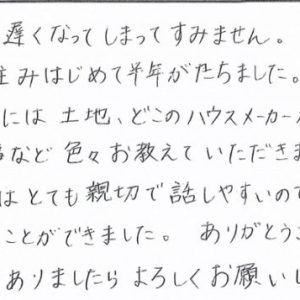 遅くなってしまってすみません。
住みはじめて半年がたちました。
には土地、どこのハウスメーカー
など色々お教えていただきま
はとても親切で話しやすいので
ことができました。ありがとうご
ありましたらよろしくお願いし